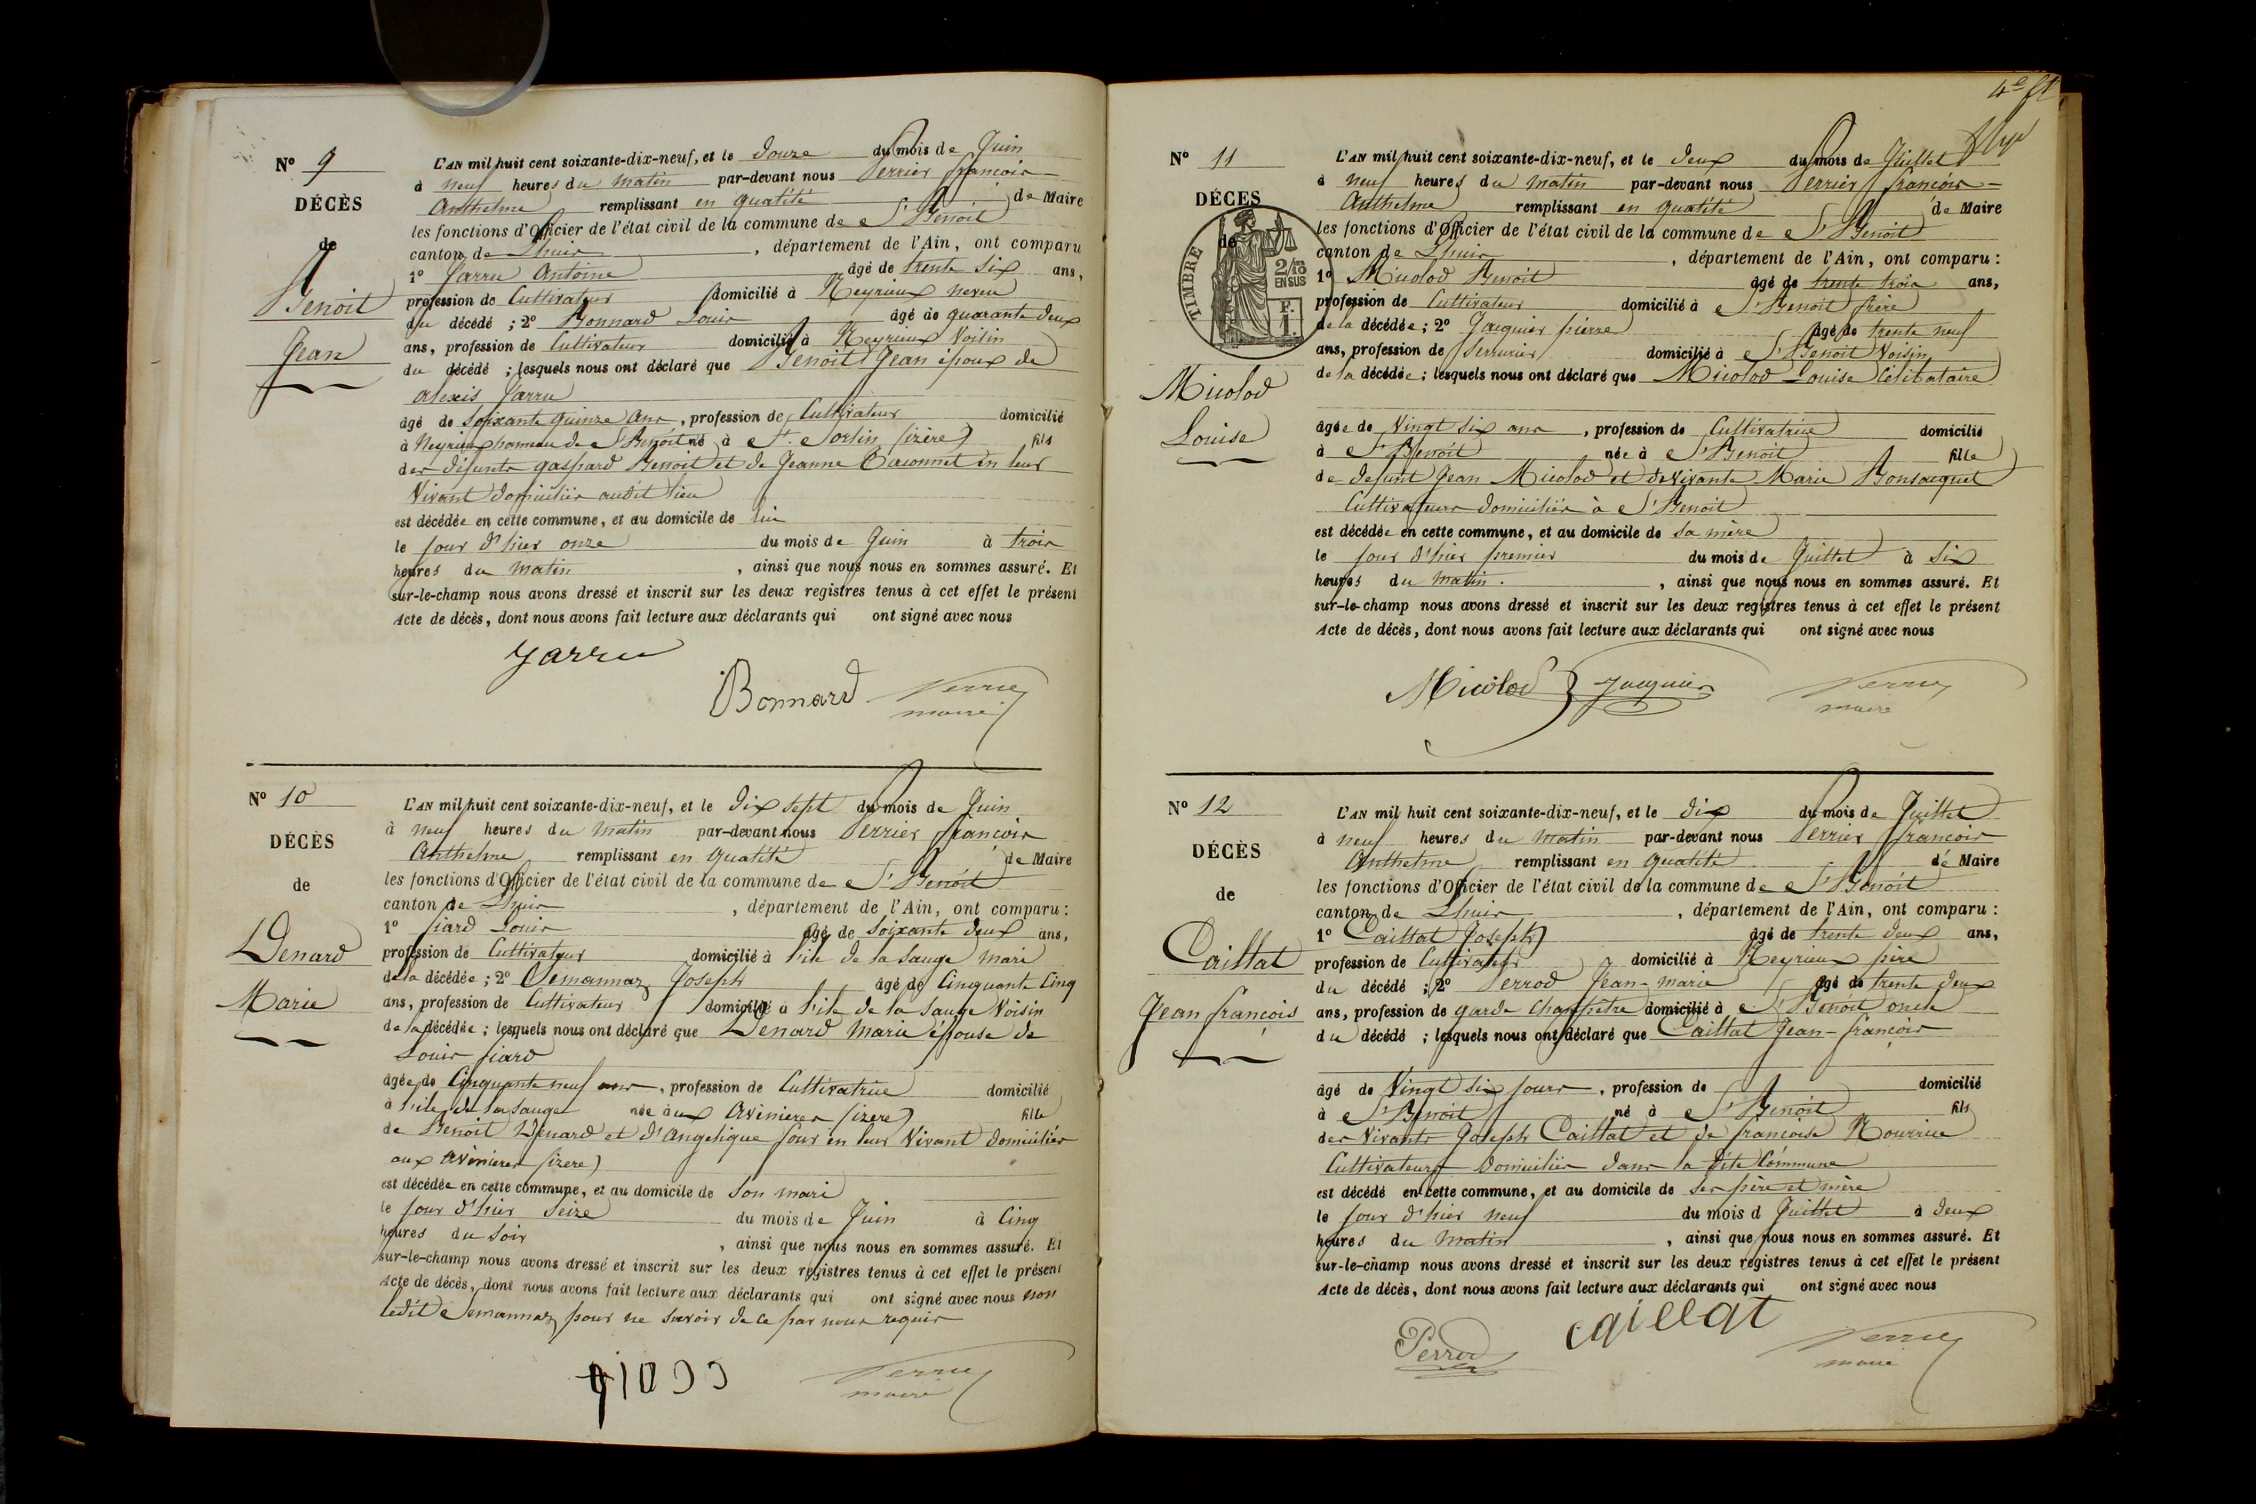 N° 9
DÉCÈS
de
Benoit
Jean
L'AN mil huit cent soixante-dix-neuf, et le douze du mois de Juin
à neuf heures du matin par-devant nous Perrier françois
Anthelme remplissant en qualité de Maire
les fonctions d'Officier de l'état civil de la commune de St Benoit
canton de Lhuis, département de l'Ain, ont comparu
1° Jarru Antoine âgé de trente six ans,
profession de Cultivateur domicilié à Neyrieux neveu
du décédé ; 2° Bonnard Louis âgé de quarante deux
ans, profession de Cultivateur domicilié à Neyrieux Voisin
du décédé ; lesquels nous ont déclaré que Benoit Jean époux de
alexis Jarru
âgé de soixante quinze ans, profession de Cultivateur domicilié
à Neyrieux hameau de St Benoit né à St. Sorlin (izère) fils
des défunts gaspard Benoit et de Jeanne en leur
Vivant domiciliés audit lieu
est décédée en cette commune, et au domicile de lui
le jour d'hier onze du mois de Juin à trois
heures du matin, ainsi que nous nous en sommes assuré. Et
sur-le-champ nous avons dressé et inscrit sur les deux registres tenus à cet effet le présent
Acte de décès, dont nous avons fait lecture aux déclarants qui ont signé avec nous
Jarru
Bonnard Perrier
maire
N° 10
DÉCÈS
de
Denard
Marie
L'AN mil huit cent soixante-dix-neuf, et le dix sept du mois de Juin
à neuf heures du matin par-devant nous Perrier françois
Anthelme remplissant en qualité de Maire
les fonctions d'Officier de l'état civil de la commune de St Benoit
canton de Lhuis, département de l'Ain, ont comparu :
1° fiard Louis âgé de soixante deux ans,
profession de Cultivateur domicilié à l'ile de la sauge mari
de la décédée ; 2° Demannaz Joseph âgé de Cinquante Cinq
ans, profession de Cultivateur domicilié à l'ile de la sauge Voisin
de la décédée ; lesquels nous ont déclaré que Denard Marie épouse de
Louis fiard
âgée de Cinquante neuf ans, profession de Cultivatrice domicilié
à l'ile de la sauge née aux avinieres (izere) fille
de Benoit Denard et d'angelique four en leur Vivant domiciliés
aux avinieres (izere)
est décédée en cette commune, et au domicile de son mari
le jour d'hier seize du mois de Juin à Cinq
heures du soir, ainsi que nous nous en sommes assuré. Et
sur-le-champ nous avons dressé et inscrit sur les deux registres tenus à cet effet le présent
Acte de décès, dont nous avons fait lecture aux déclarants qui ont signé avec nous non
ledit Demannaz pour ne savoir de ce par nous requis
Perrier
maire
4e ft
N° 11
DÉCÈS
de
TIMBRE
2/10 EN SUS
F. 1.
Micolod
Louise
L'AN mil huit cent soixante-dix-neuf, et le deux du mois de Juillet
à neuf heures du matin par-devant nous Perrier françois
Anthelme remplissant en qualité de Maire
les fonctions d'Officier de l'état civil de la commune de St Benoit
canton de Lhuis, département de l'Ain, ont comparu :
1° Micolod Benoit âgé de trente trois ans,
profession de Cultivateur domicilié à St Benoit frère
de la décédée ; 2° Jacquier pierre âgé de trente neuf
ans, profession de Serrurier domicilié à St Benoit Voisin
de la décédée ; lesquels nous ont déclaré que Micolod Louise Célibataire
âgée de Vingt six ans, profession de Cultivatrice domicilié
à St Benoit née à St Benoit fille
de defunt Jean Micolod et de vivante Marie Bonsacquet
Cultivateurs domiciliés à St Benoit
est décédée en cette commune, et au domicile de sa mère
le jour d'hier premier du mois de Juillet à six
heures du matin., ainsi que nous nous en sommes assuré. Et
sur-le-champ nous avons dressé et inscrit sur les deux registres tenus à cet effet le présent
Acte de décès, dont nous avons fait lecture aux déclarants qui ont signé avec nous
Micolod Jacquier Perrier
maire
N° 12
DÉCÈS
de
Caillat
Jean françois
L'AN mil huit cent soixante-dix-neuf, et le dix du mois de Juillet
à neuf heures du matin par-devant nous Perrier françois
Anthelme remplissant en qualité de Maire
les fonctions d'Officier de l'état civil de la commune de St Benoit
canton de Lhuis, département de l'Ain, ont comparu :
1° Caillat Joseph âgé de trente deux ans,
profession de Cultivateur domicilié à Neyrieux père
du décédé ; 2° Perrod Jean-marie âgé de trente deux
ans, profession de garde champêtre domicilié à St Benoit oncle
du décédé ; lesquels nous ont déclaré que Caillat Jean-françois
âgé de Vingt six jours, profession de domicilié
à St Benoit né à St Benoit fils
des vivants Joseph Caillat et de françoise Nourrice
Cultivateurs domiciliés dans la dite Commune
est décédé en cette commune, et au domicile de ses père et mère
le jour d'hier neuf du mois d Juillet à deux
heures du matin, ainsi que nous nous en sommes assuré. Et
sur-le-champ nous avons dressé et inscrit sur les deux registres tenus à cet effet le présent
Acte de décès, dont nous avons fait lecture aux déclarants qui ont signé avec nous
Perrod caillat Perrier
maire